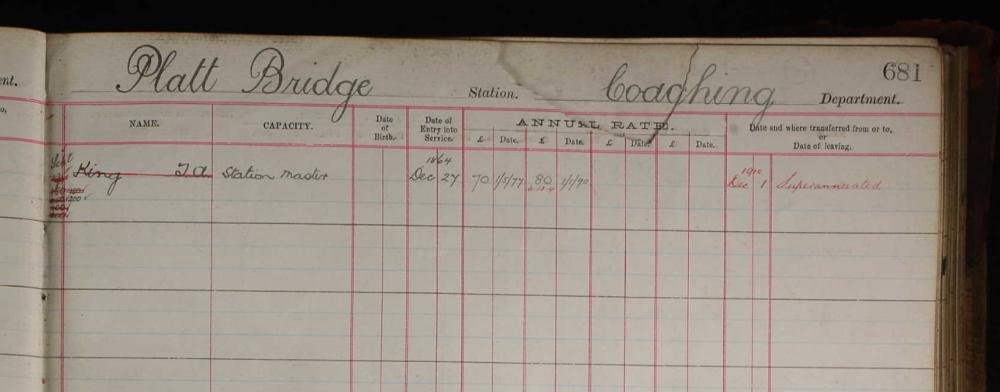 ent.
Platt Bridge Station. Coaching Department. 681
o,
NAME. CAPACITY. Date of Birth. Date of Entry into Service. ANNUAL RATE. Date and where transferred from or to, or Date of leaving.
£ Date. £ Date. £ Date. £ Date.
1864 1910
King T.A. Station Master Dec 27 70 1/5/77 80 1/1/90 Dec 1 Superannuated